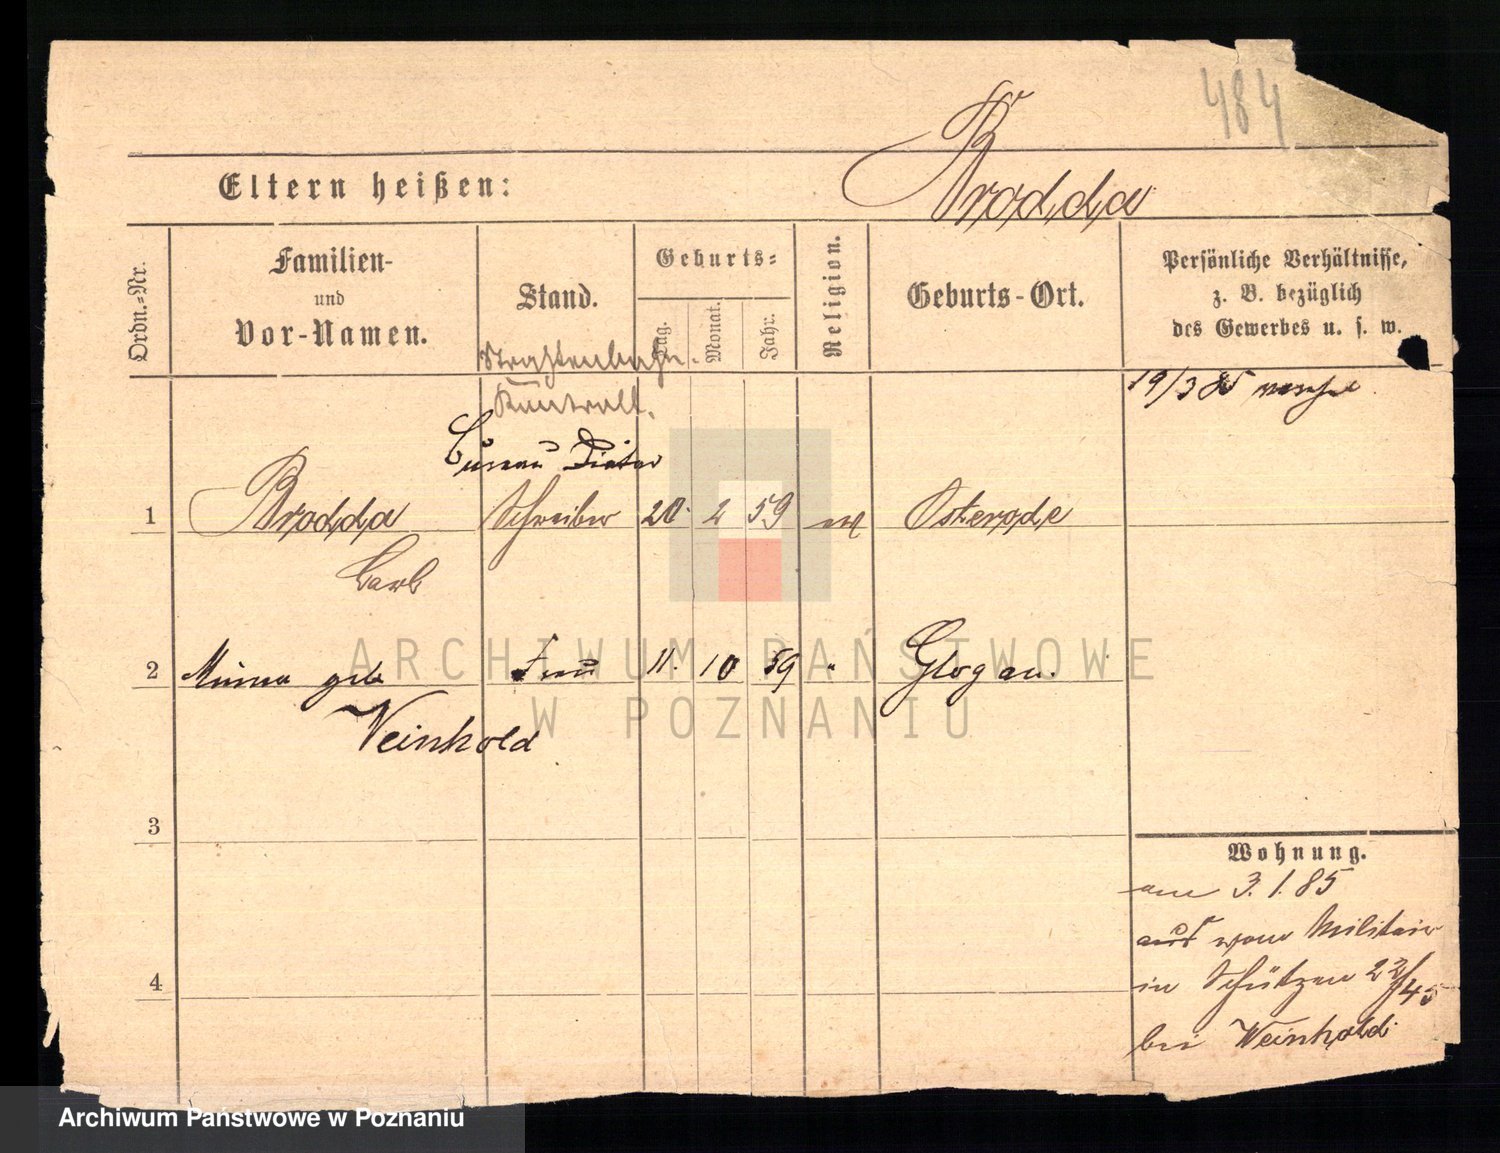 484
Brodda
Eltern heißen:
Ordn.-Nr.
Familien- und Vor-Namen.
Stand.
Geburts-
Tag.
Monat.
Jahr.
Religion.
Geburts-Ort.
Persönliche Verhältnisse,
z. B. bezüglich
des Gewerbes u. s. w.
19/3 85
Büreau Diätar
1 Brodda Schreiber 20. 2 59 ev Osterode
Carl
2 Minna geb Frau 11. 10 59 " Glogau.
Weinhold
3
Wohnung.
am 3.1.85
aus vom Militair
4
in Schützen 22/45
bei Weinhold
ARCHIWUM PAŃSTWOWE
W POZNANIU
Archiwum Państwowe w Poznaniu